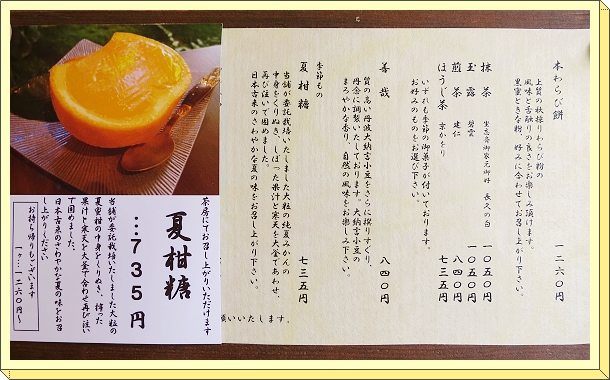 本わらび餅 一二六〇円
上質の秋採りわらび粉の
風味と舌触りの良さをお楽しみ頂けます。
黒蜜ときな粉、好みに合わせてお召し上がり下さい。
抹茶 坐忘斎御家元御好 長久の白 一〇五〇円
玉露 碧雲 一〇五〇円
煎茶 建仁 八四〇円
ほうじ茶 京かをり 七三五円
いずれも季節の御菓子が付いております。
お好みのものをお選び下さい。
善哉 八四〇円
質の高い丹波大納言小豆をさらに撰りすぐり、
丹念に調製いたしております。大納言小豆の
まろやかな香り、自然の風味をお楽しみ下さい。
季節もの
夏柑糖 七三五円
当舗が委託栽培いたしました大粒の純夏みかんの
中身をくりぬき、しぼった果汁と寒天を大釜であわせ、
再び注いで固めました。
日本古来のさわやかな夏の味をお召し上がり下さい。
願いいたします。
茶房にてお召し上がりいただけます
夏柑糖
…735円
当舗が委託栽培いたしました大粒の
夏蜜柑の中身をくりぬき、搾った
果汁と寒天を大釜で合わせ再び注い
で固めました。
日本古来のさわやかな夏の味をお召
し上がりください
お持ち帰りもございます
一ケ…一二六〇円～